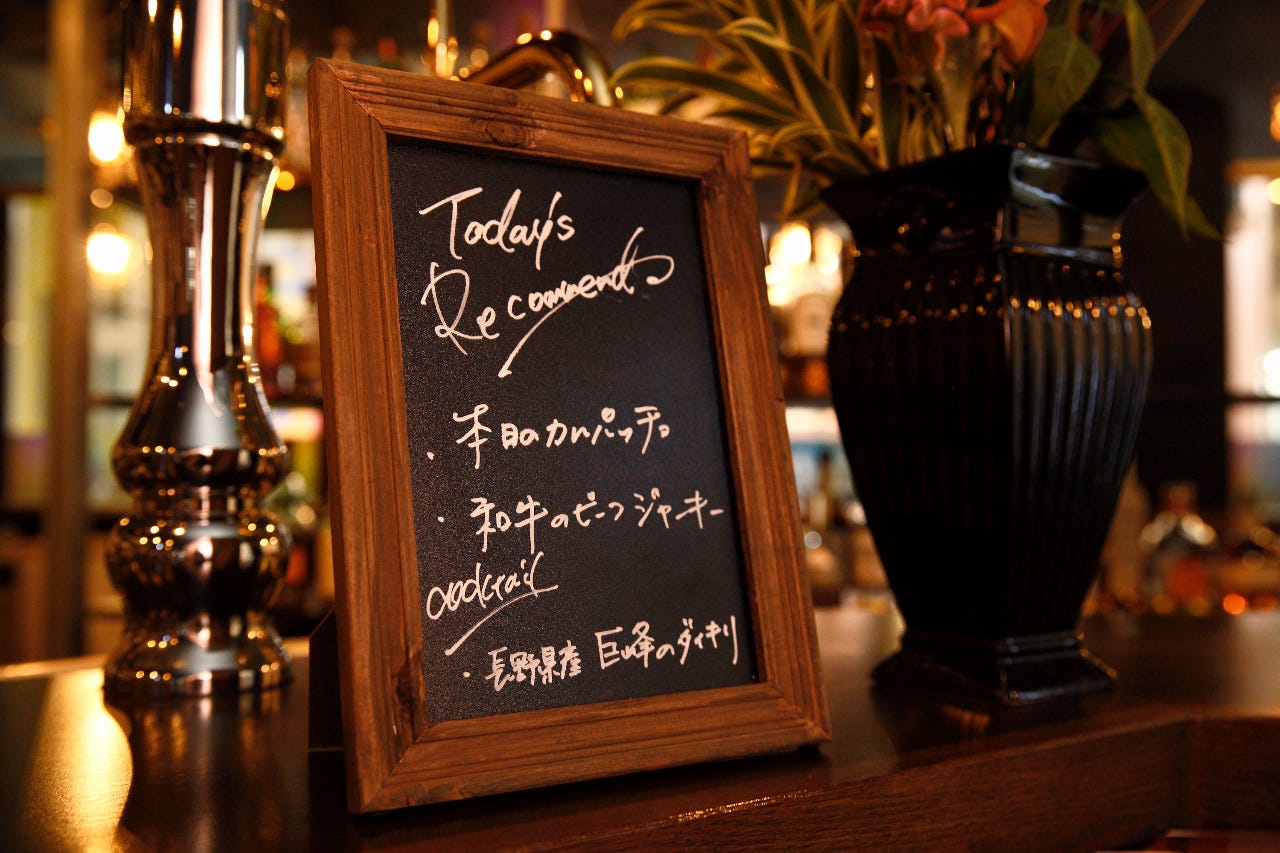 Today's
Recommend
・本日のカルパッチョ
・和牛のビーフジャーキー
cocktail
・長野県産 巨峰のダイキリ